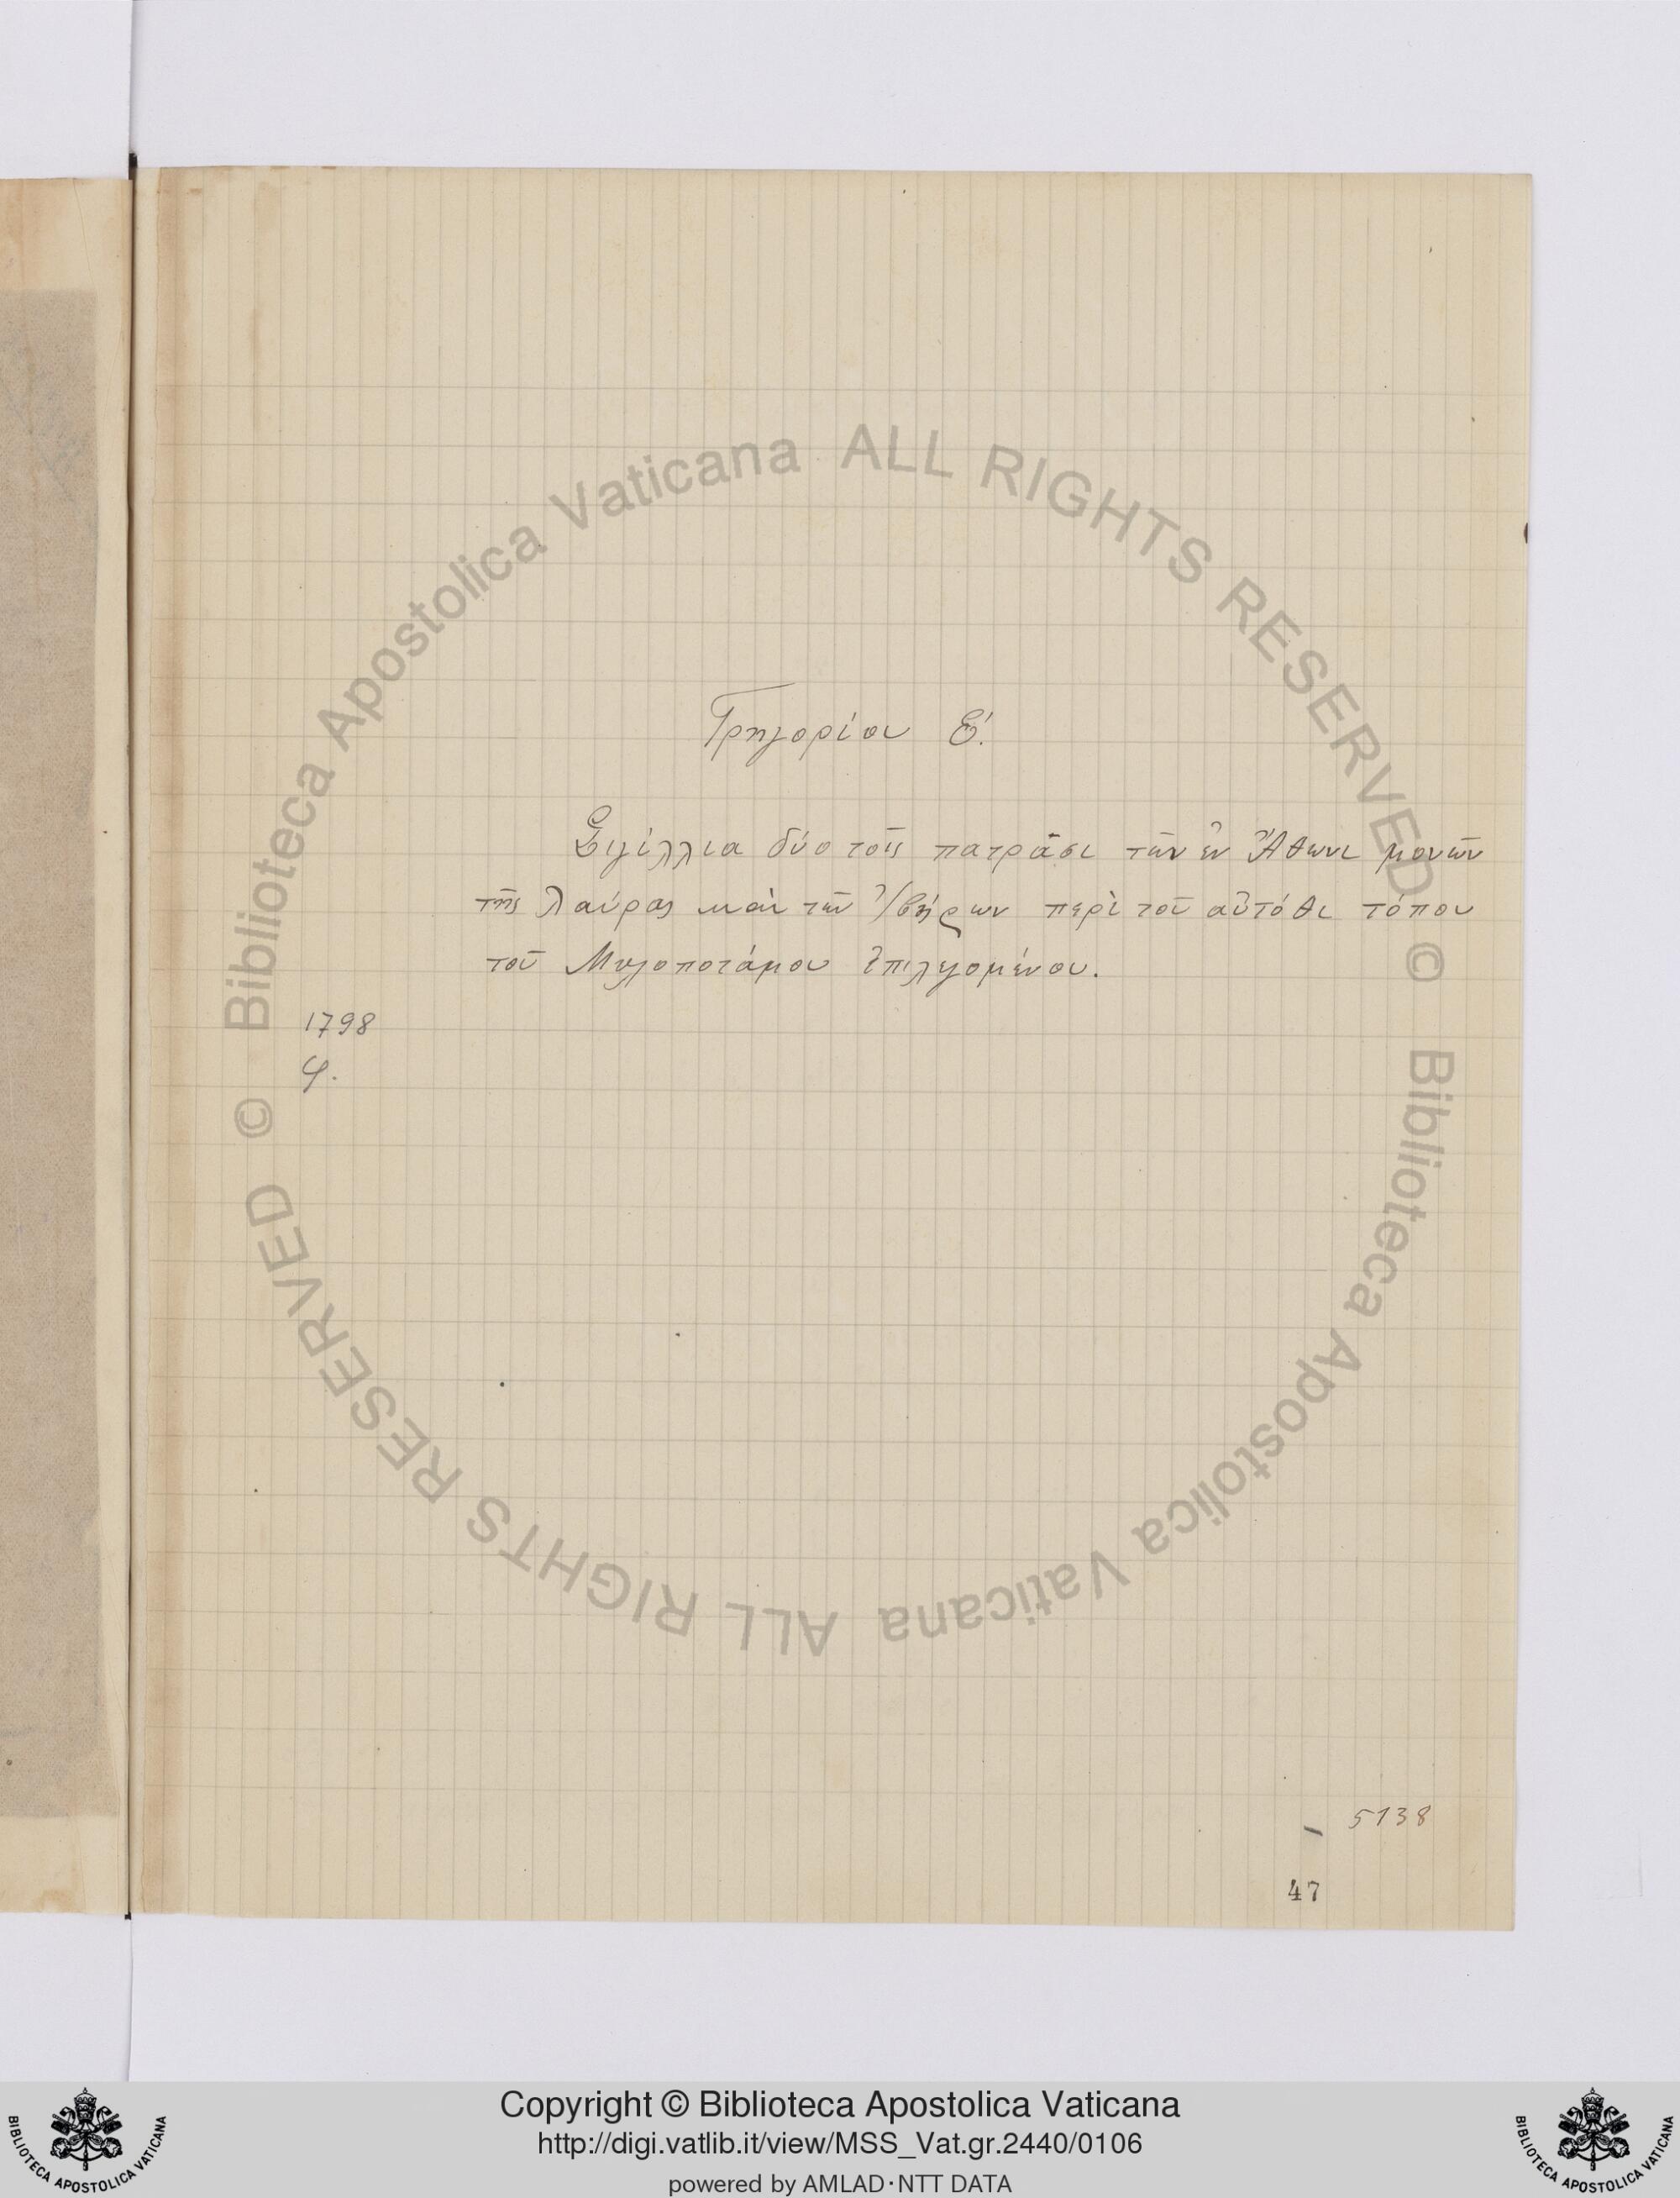 Γρηγορίου Ε΄.
Σιγίλλια δύο τοῖς πατράσι τῶν ἐν Ἄθωνι μονῶν
τῆς Λαύρας καὶ τῶν Ἰβήρων περὶ τοῦ αὐτόθι τόπου
τοῦ Μυλοποτάμου ἐπιλεγομένου.
1798
φ.
5138
47
© Biblioteca Apostolica Vaticana ALL RIGHTS RESERVED
© Biblioteca Apostolica Vaticana ALL RIGHTS RESERVED
Copyright © Biblioteca Apostolica Vaticana
http://digi.vatlib.it/view/MSS_Vat.gr.2440/0106
powered by AMLAD·NTT DATA
BIBLIOTECA APOSTOLICA VATICANA
BIBLIOTECA APOSTOLICA VATICANA